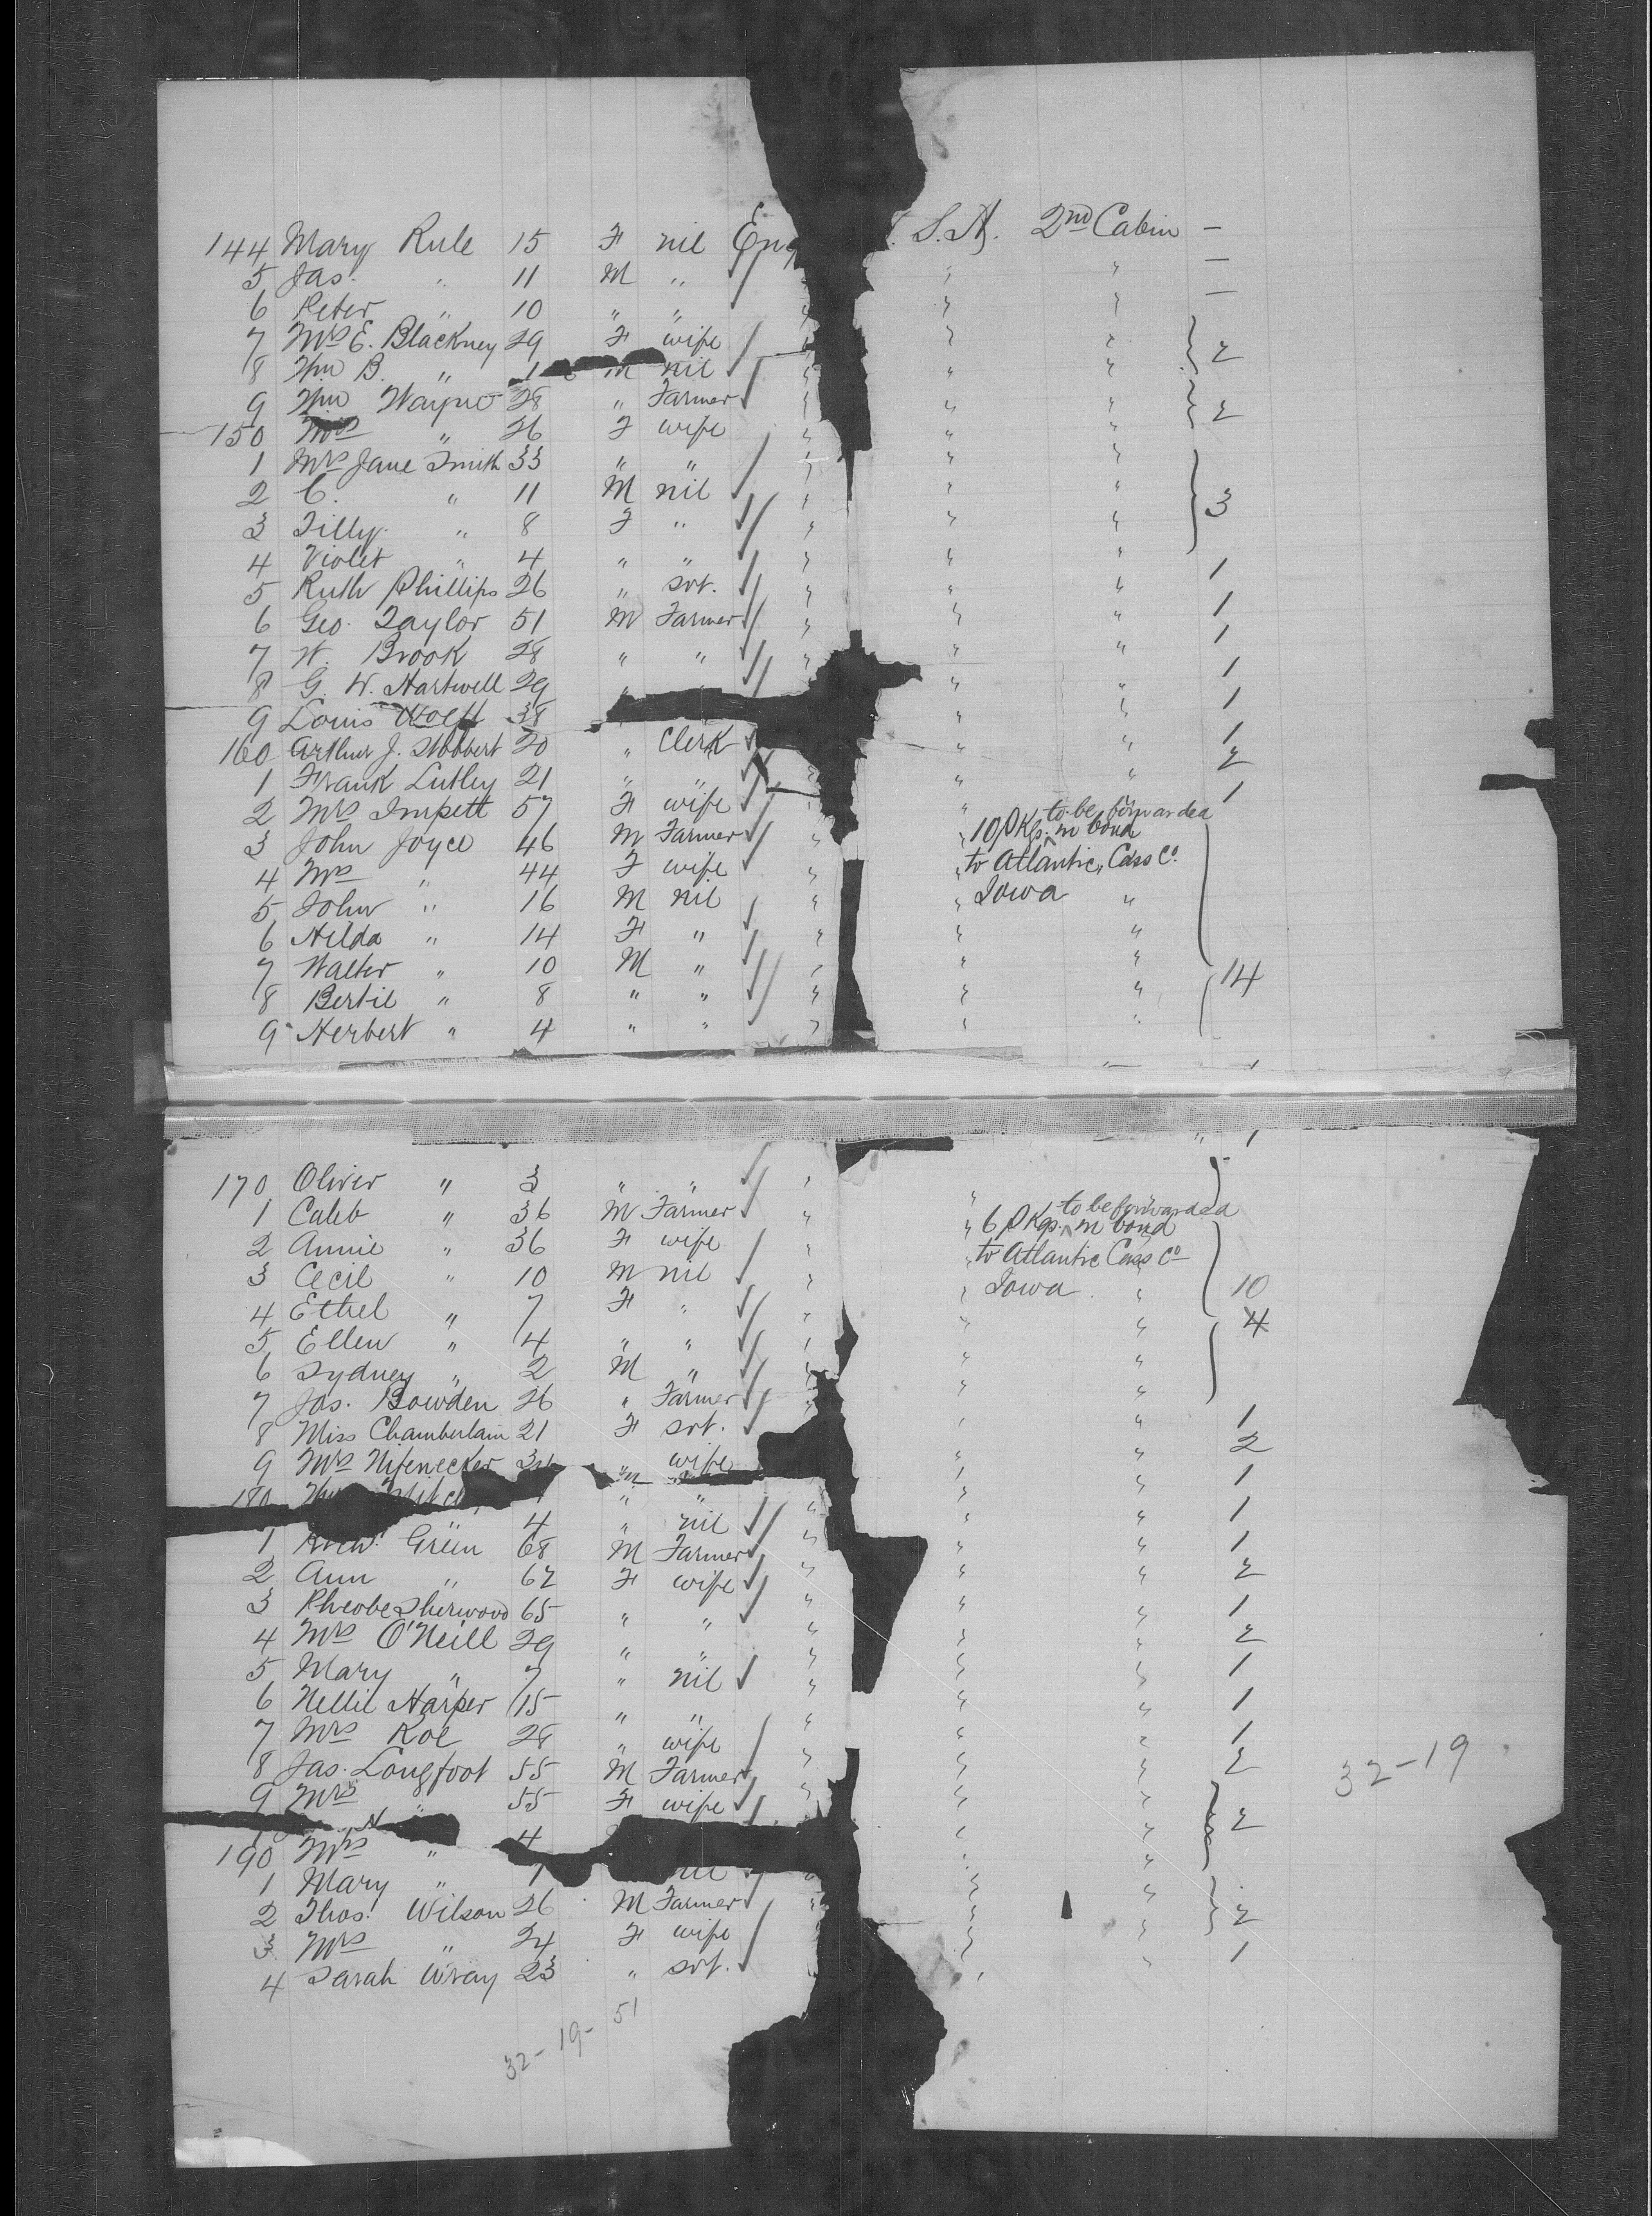 144 Mary Rule 15 F nil Eng S.A. 2nd Cabin –
5 Jas. " 11 M " " " –
6 Peter " 10 " " " " –
7 Mrs E. Blackney 29 F wife " "
8 Wm B. " 1 M nil " " 2
9 Wm Wayne 28 " Farmer " "
150 Mrs " 26 F wife " " 2
1 Mrs Jane Smith 33 " " " "
2 C. " 11 M nil " "
3 Tilly " 8 F " " " 3
4 Violet " 4 " " " "
5 Ruth Phillips 26 " svt. " " 1
6 Geo. Taylor 51 M Farmer " " 1
7 W. Brook 28 " " " " 1
8 G. W. Hartwell 29 " " " 1
9 Louis Wolff 38 " " 1
160 Arthur J. Stobbert 20 " Clerk " " 1
1 Frank Lutley 21 " " " " 2
2 Mrs Impett 57 F wife " 1
3 John Joyce 46 M Farmer " 10 Pkgs. to be forwarded in bond
4 Mrs " 44 F wife " to Atlantic, Cass Co.
5 John " 16 M nil " Iowa "
6 Hilda " 14 F " " "
7 Walter " 10 M " " " 14
8 Bertie " 8 " " " "
9 Herbert " 4 " " " "
170 Oliver " 3 " " "
1 Caleb " 36 M Farmer " 6 Pkgs. to be forwarded in bond
2 Annie " 36 F wife " to Atlantic Cass Co
3 Cecil " 10 M nil " Iowa " 10
4 Ethel " 7 F " " " 4
5 Ellen " 4 " " " "
6 Sydney " 2 M " " "
7 Jas. Bowden 26 " Farmer " " 1
8 Miss Chamberlain 21 F svt. " " 2
9 Mrs Nifenecker " wife " " 1
180
4 " nil " " 1
1 Green 68 M Farmer " " 1
2 Ann " 62 F wife " " 2
3 Pheobe Sherwood 65 " " " " 1
4 Mrs O'Neill 29 " " " " 2
5 Mary " 7 " nil " " 1
6 Nellie Harper 15 " " " " 1
7 Mrs Roe 28 " wife " " 1
8 Jas. Longfoot 55 M Farmer " " 2
9 Mrs " 55 F wife " "
190 Mrs " 4 " " 2
1 Mary " nil " "
2 Thos. Wilson 26 M Farmer " "
3 Mrs " 24 F wife " " 2
4 Sarah Wray 23 " svt. " " 1
32-19
32-19-51